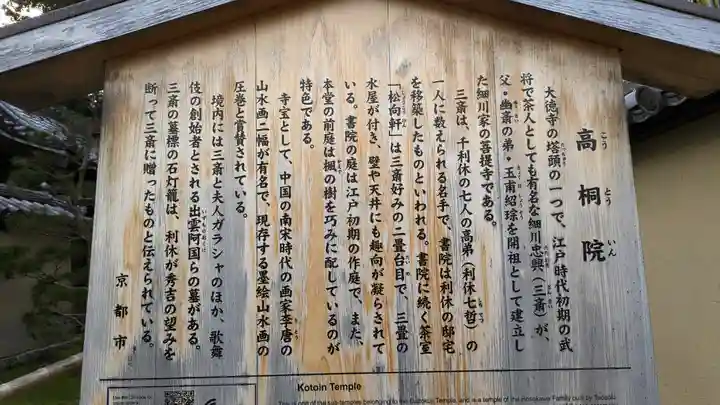 高桐院
こう とう いん
大徳寺の塔頭の一つで、江戸時代初期の武
将で茶人としても有名な細川忠興（三斎）が、
父・幽斎の弟・玉甫紹琮を開祖として建立し
た細川家の菩提寺である。
三斎は、千利休の七人の高弟（利休七哲）の
一人に数えられる名手で、書院は利休の邸宅
を移築したものといわれる。書院に続く茶室
「松向軒」は三斎好みの二畳台目で、三畳の
水屋が付き、壁や天井にも趣向が凝らされて
いる。書院の庭は江戸初期の作庭で、また、
本堂の前庭は楓の樹を巧みに配しているのが
特色である。
寺宝として、中国の南宋時代の画家李唐の
山水画二幅が有名で、現存する墨絵山水画の
圧巻と賞賛されている。
境内には三斎と夫人ガラシャのほか、歌舞
伎の創始者とされる出雲阿国らの墓がある。
三斎の墓標の石灯籠は、利休が秀吉の望みを
断って三斎に贈ったものと伝えられている。
京都市
Kotoin Temple